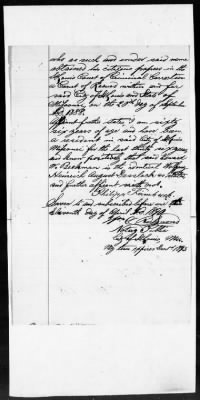 who as such and under said name
obtained his citizen papers in the
St. Louis Court of Criminal Correction
a Court of Record within and for
said City of St. Louis and State of
Missouri on the 28th day of
1888.
Affiant further states I am sixty
six years of age and have been
a resident in said City of St. Louis
Missouri for the last thirty six years
and know positively that said
Bookman is the identical
Heinrich August
and further affiant saith not.
Philipp
Sworn to and subscribed before me this
eleventh day of April A.D. 1892
Notary Public
City of St. Louis, Mo.
My term expires